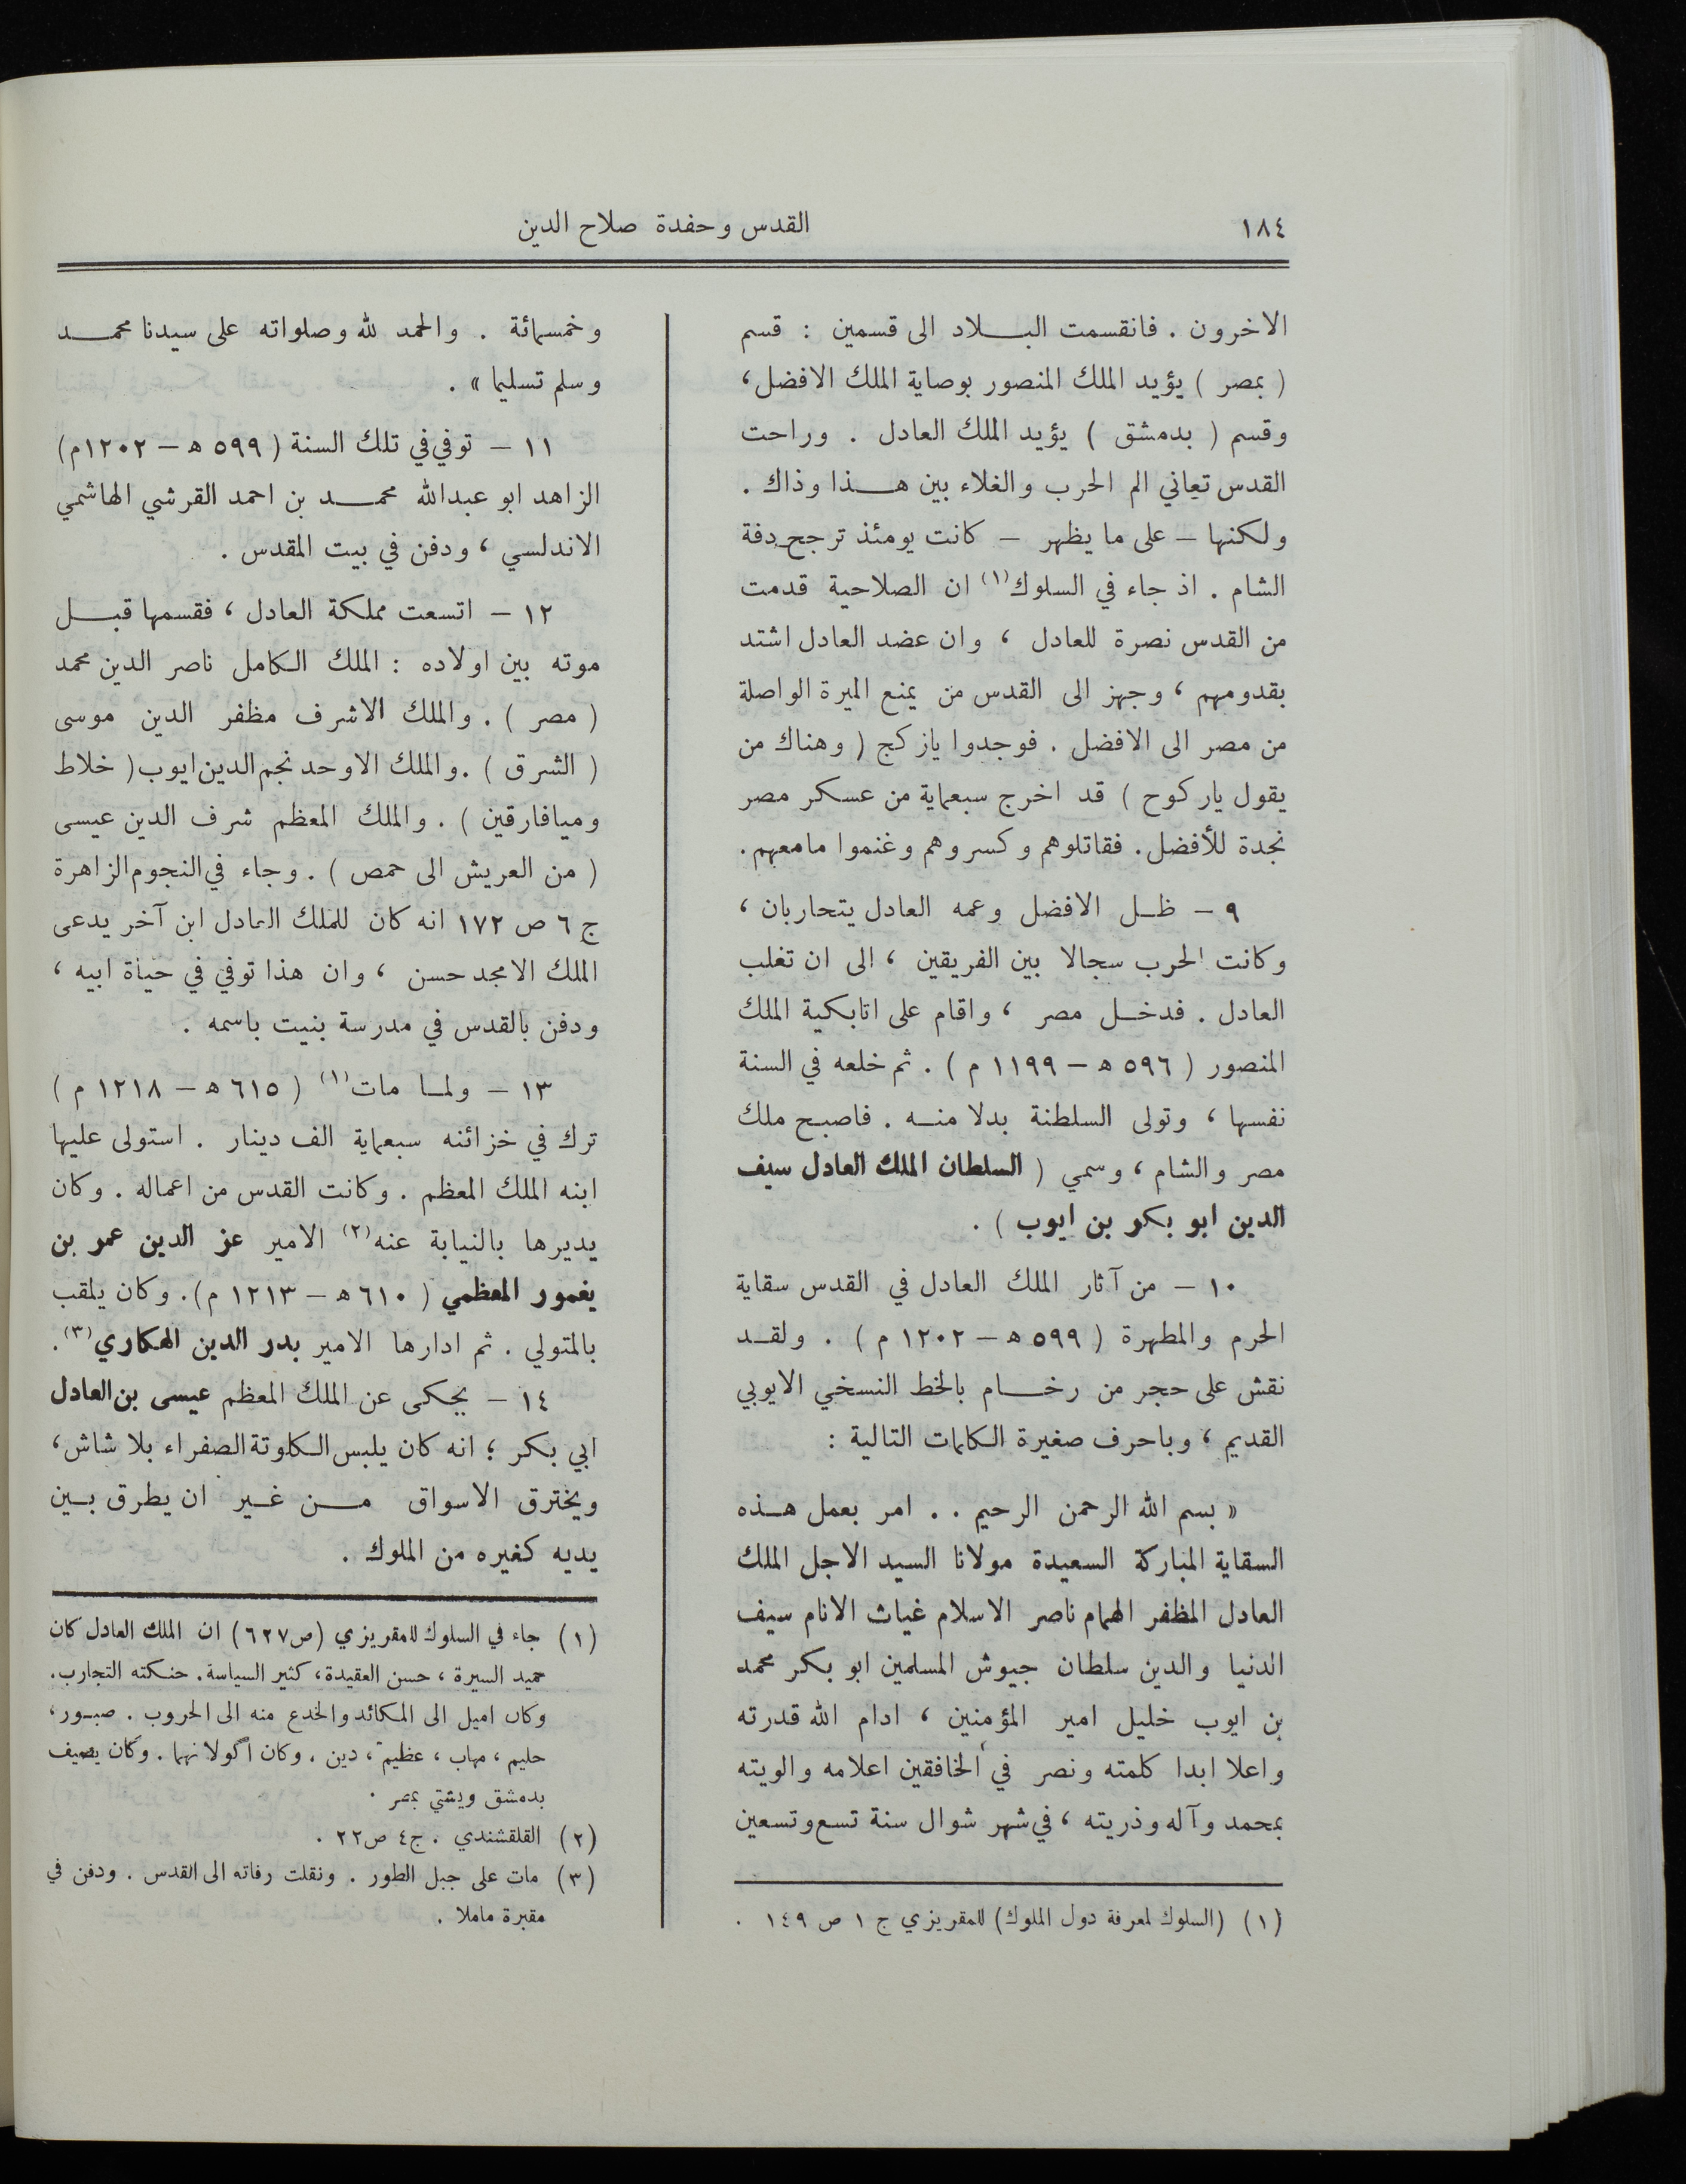 ١٨٤
القدس وحفدة صلاح الدين
الاخرون . فانقسمت البلاد الى قسمين : قسم
( بمصر ) يؤيد الملك المنصور بوصاية الملك الافضل ،
وقسم ( بدمشق ) يؤيد الملك العادل . وراحت
القدس تعاني الم الحرب والغلاء بين هذا وذاك .
ولكنها – على ما يظهر – كانت يومئذ ترجح دفة
الشام . اذ جاء في السلوك (١) ان الصلاحية قدمت
من القدس نصرة للعادل ، وان عضد العادل اشتد
بقدومهم ، وجهز الى القدس من يمنع الميرة الواصلة
من مصر الى الافضل . فوجدوا يازكج ( وهناك من
يقول ياركوح ) قد اخرج سبعماية من عسكر مصر
نجدة للأفضل . فقاتلوهم وكسروهم وغنموا مامعهم .
٩ – ظل الافضل وعمه العادل يتحاربان ،
وكانت الحرب سجالا بين الفريقين ، الى ان تغلب
العادل . فدخل مصر ، واقام على اتابكية الملك
المنصور ( ٥٩٦ ه – ١١٩٩ م ) . ثم خلعه في السنة
نفسها ، وتولى السلطنة بدلا منه . فاصبح ملك
مصر والشام ، وسمي ( السلطان الملك العادل سيف
الدين ابو بكر بن ايوب ) .
١٠ – من آثار الملك العادل في القدس سقاية
الحرم والمطهرة ( ٥٩٩ ه – ١٢٠٢ م ) . ولقد
نقش على حجر من رخام بالخط النسخي الايوبي
القديم ، وباحرف صغيرة الكلمات التالية :
« بسم الله الرحمن الرحيم . . امر بعمل هذه
السقاية المباركة السعيدة مولانا السيد الاجل الملك
العادل المظفر الهمام ناصر الاسلام غياث الانام سيف
الدنيا والدين سلطان جيوش المسلمين ابو بكر محمد
بن ايوب خليل امير المؤمنين ، ادام الله قدرته
واعلا ابدا كلمته ونصر في الخافقين اعلامه والويته
بمحمد وآله وذريته ، في شهر شوال سنة تسع وتسعين
(١) (السلوك لمعرفة دول الملوك) للمقريزي ج ١ ص ١٤٩ .
وخمسمائة . والحمد لله وصلواته على سيدنا محمد
وسلم تسليما » .
١١ – توفي في تلك السنة ( ٥٩٩ ه – ١٢٠٢م)
الزاهد ابو عبدالله محمد بن احمد القرشي الهاشمي
الاندلسي ، ودفن في بيت المقدس .
١٢ – اتسعت مملكة العادل ، فقسمها قبل
موته بين اولاده : الملك الكامل ناصر الدين محمد
( مصر ) . والملك الاشرف مظفر الدين موسى
( الشرق ) . والملك الاوحد نجم الدين ايوب ( خلاط
وميافارقين ) . والملك المعظم شرف الدين عيسى
( من العريش الى حمص ) . وجاء في النجوم الزاهرة
ج ٦ ص ١٧٢ انه كان للملك العادل ابن آخر يدعى
الملك الامجد حسن ، وان هذا توفي في حياة ابيه ،
ودفن بالقدس في مدرسة بنيت باسمه .
١٣ – ولما مات (١) ( ٦١٥ ه – ١٢١٨ م )
ترك في خزائنه سبعماية الف دينار . استولى عليها
ابنه الملك المعظم . وكانت القدس من اعماله . وكان
يديرها بالنيابة عنه (٢) الامير عز الدين عمر بن
يغمور المعظمي ( ٦١٠ ه – ١٢١٣ م ) . وكان يلقب
بالمتولي . ثم ادارها الامير بدر الدين الهكاري (٣) .
١٤ – يحكى عن الملك المعظم عيسى بن العادل
ابي بكر ؛ انه كان يلبس الكلوتة الصفراء بلا شاش ،
ويخترق الاسواق من غير ان يطرق بين
يديه كغيره من الملوك .
(١) جاء في السلوك للمقريزي (ص٦٢٧) ان الملك العادل كان
حميد السيرة ، حسن العقيدة ، كثير السياسة . حنكته التجارب .
وكان اميل الى المكائد والخدع منه الى الحروب . صبور ،
حليم ، مهاب ، عظيم ، دين . وكان اكولا نهما . وكان يصيف
بدمشق ويشتي بمصر .
(٢) القلقشندي . ج٤ ص٢٢ .
(٣) مات على جبل الطور . ونقلت رفاته الى القدس . ودفن في
مقبرة ماملا .